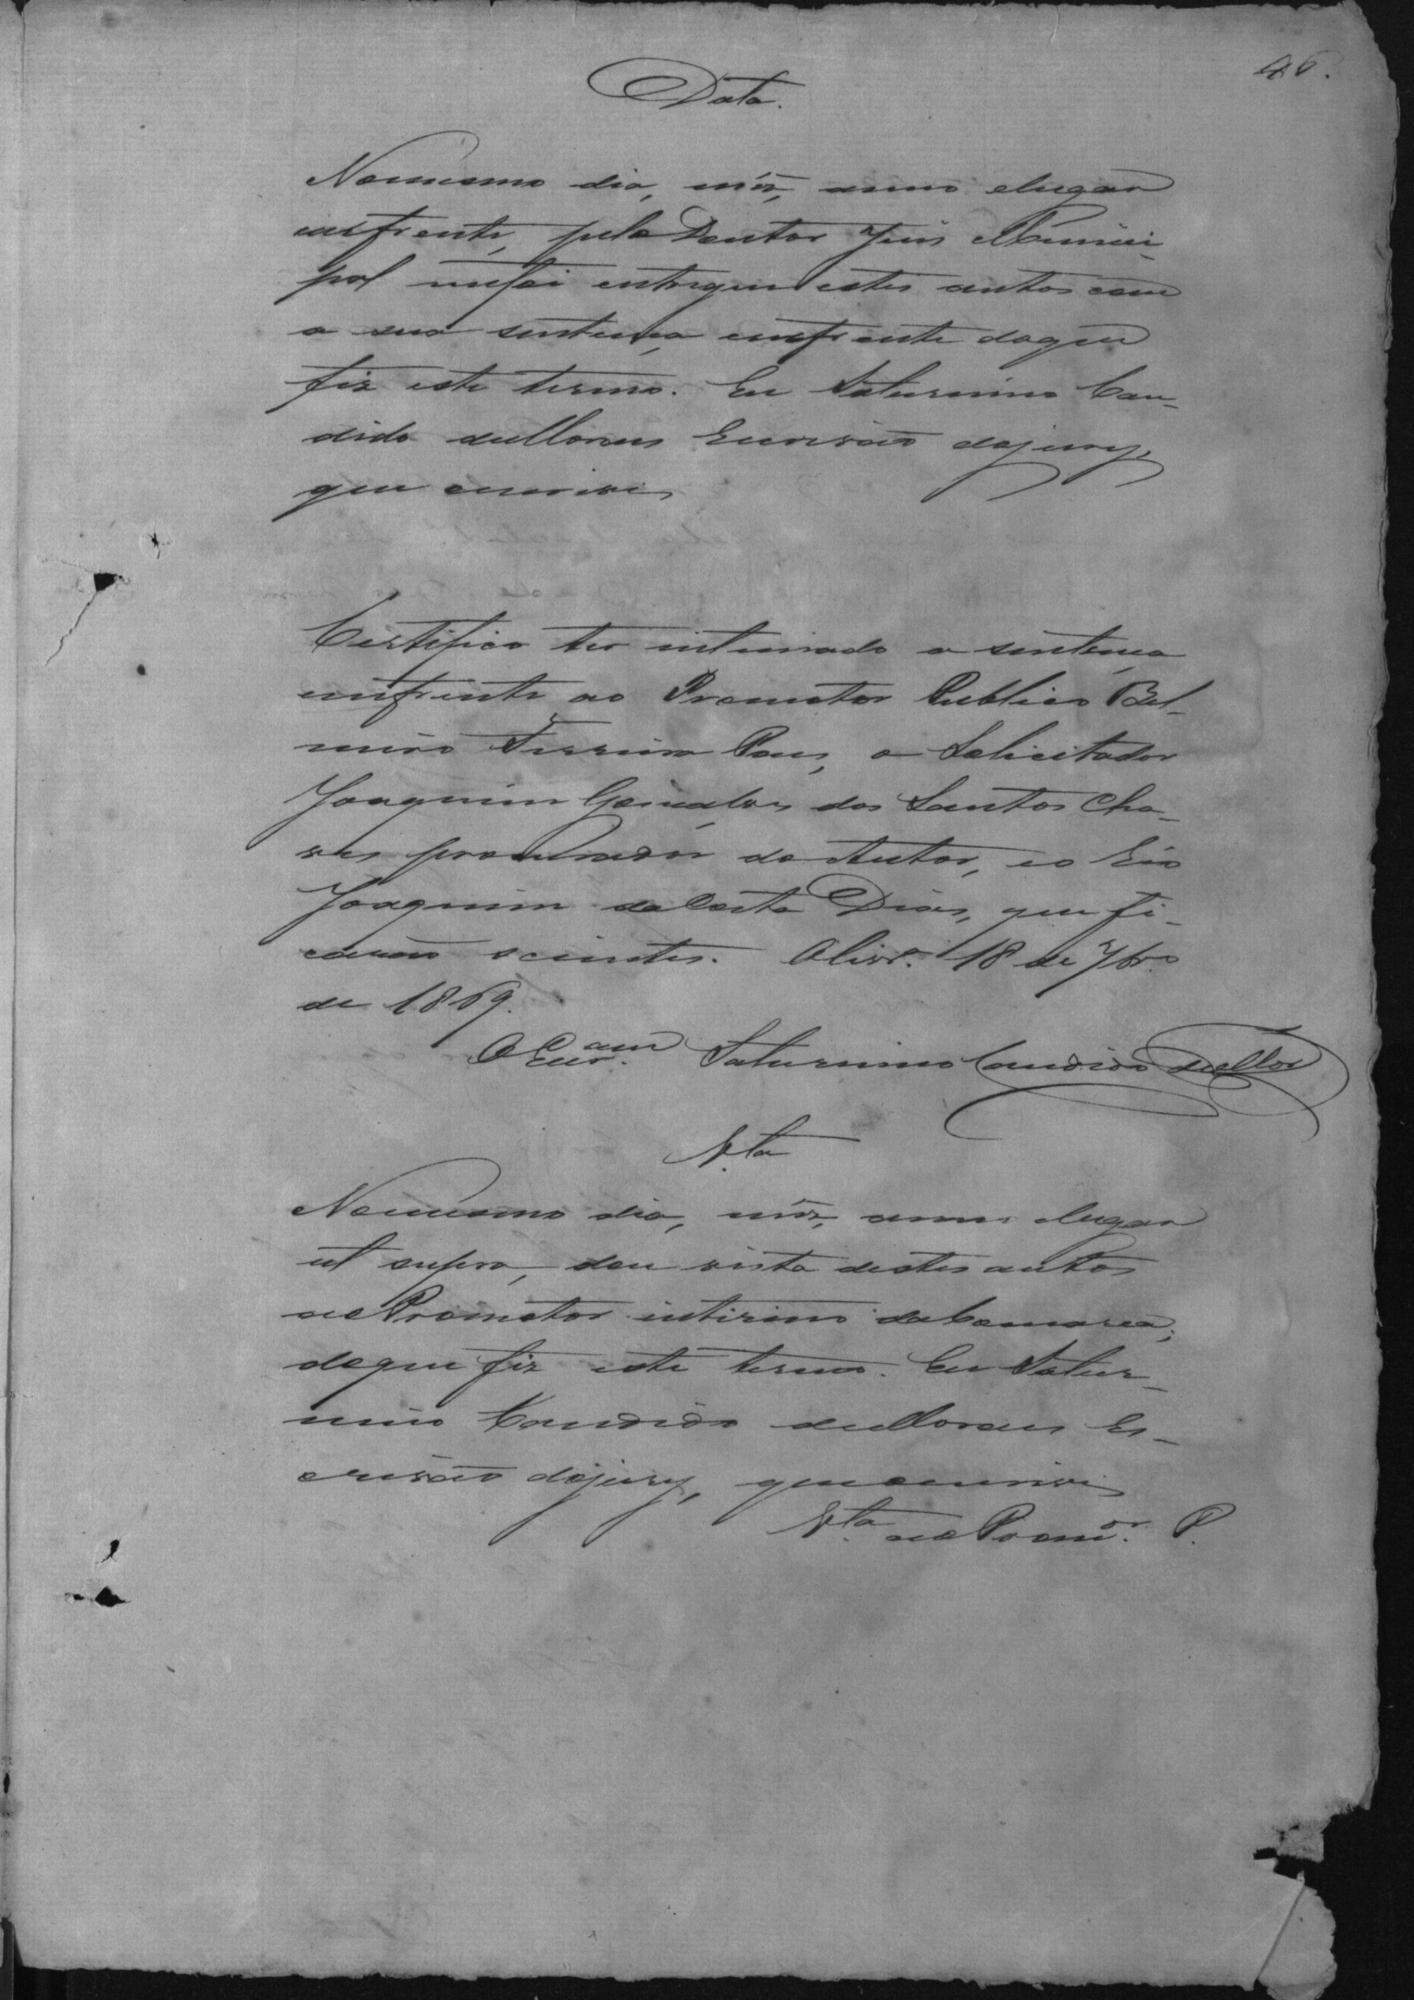 46.
Data.
No mesmo dia, mês, anno e lugar
emfrente, pelo Doutor Juis Munici-
pal me foi entregue estes autos com
a sua sentença emfrente do que
fiz este termo. Eu Saturnino Can-
dido de Moraes Escrivão do jury,
que escrevi
Certifico ter intimado a sentença
emfrente ao Promotor Publico Bel-
miro Ferreira Paes, o Solicitador
Joaquim Gonçalves dos Santos Cha-
ves procurador do Autor, e o Réo
Joaquim da Costa Dias, que fi-
carão scientes. Olivr.ª 18 de 7br.o
de 1869.
O Escr.am Saturnino Candido de Mor
V.ta
No mesmo dia, mês, anno e lugar
ut supra, dou vista destes autos
ao Promotor interino da Comarca;
do que fiz este termo. Eu Satur-
nino Candido de Moraes Es-
crivão do jury, que escrevi
V.ta ao Prom.or P.